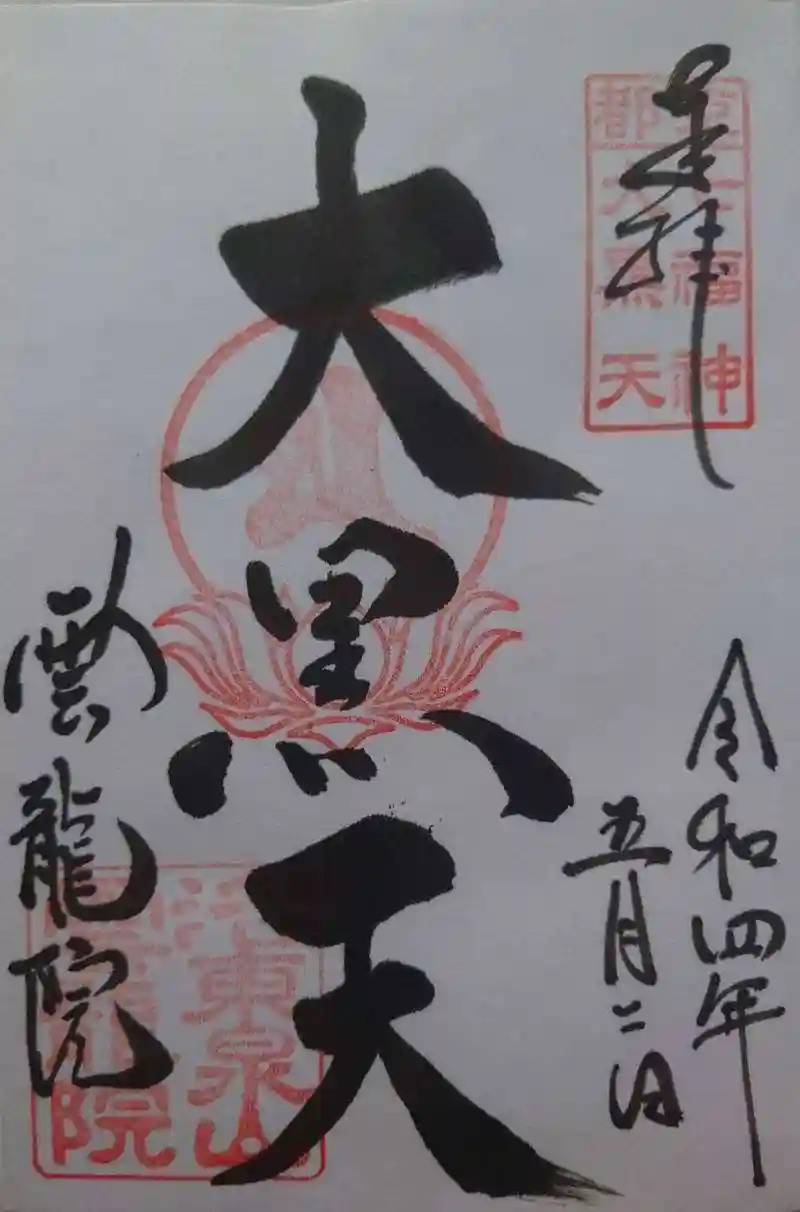 奉拝
京都
七福神
大黒天
令和四年
五月二日
大黒天
雲龍院
東泉山
雲龍院